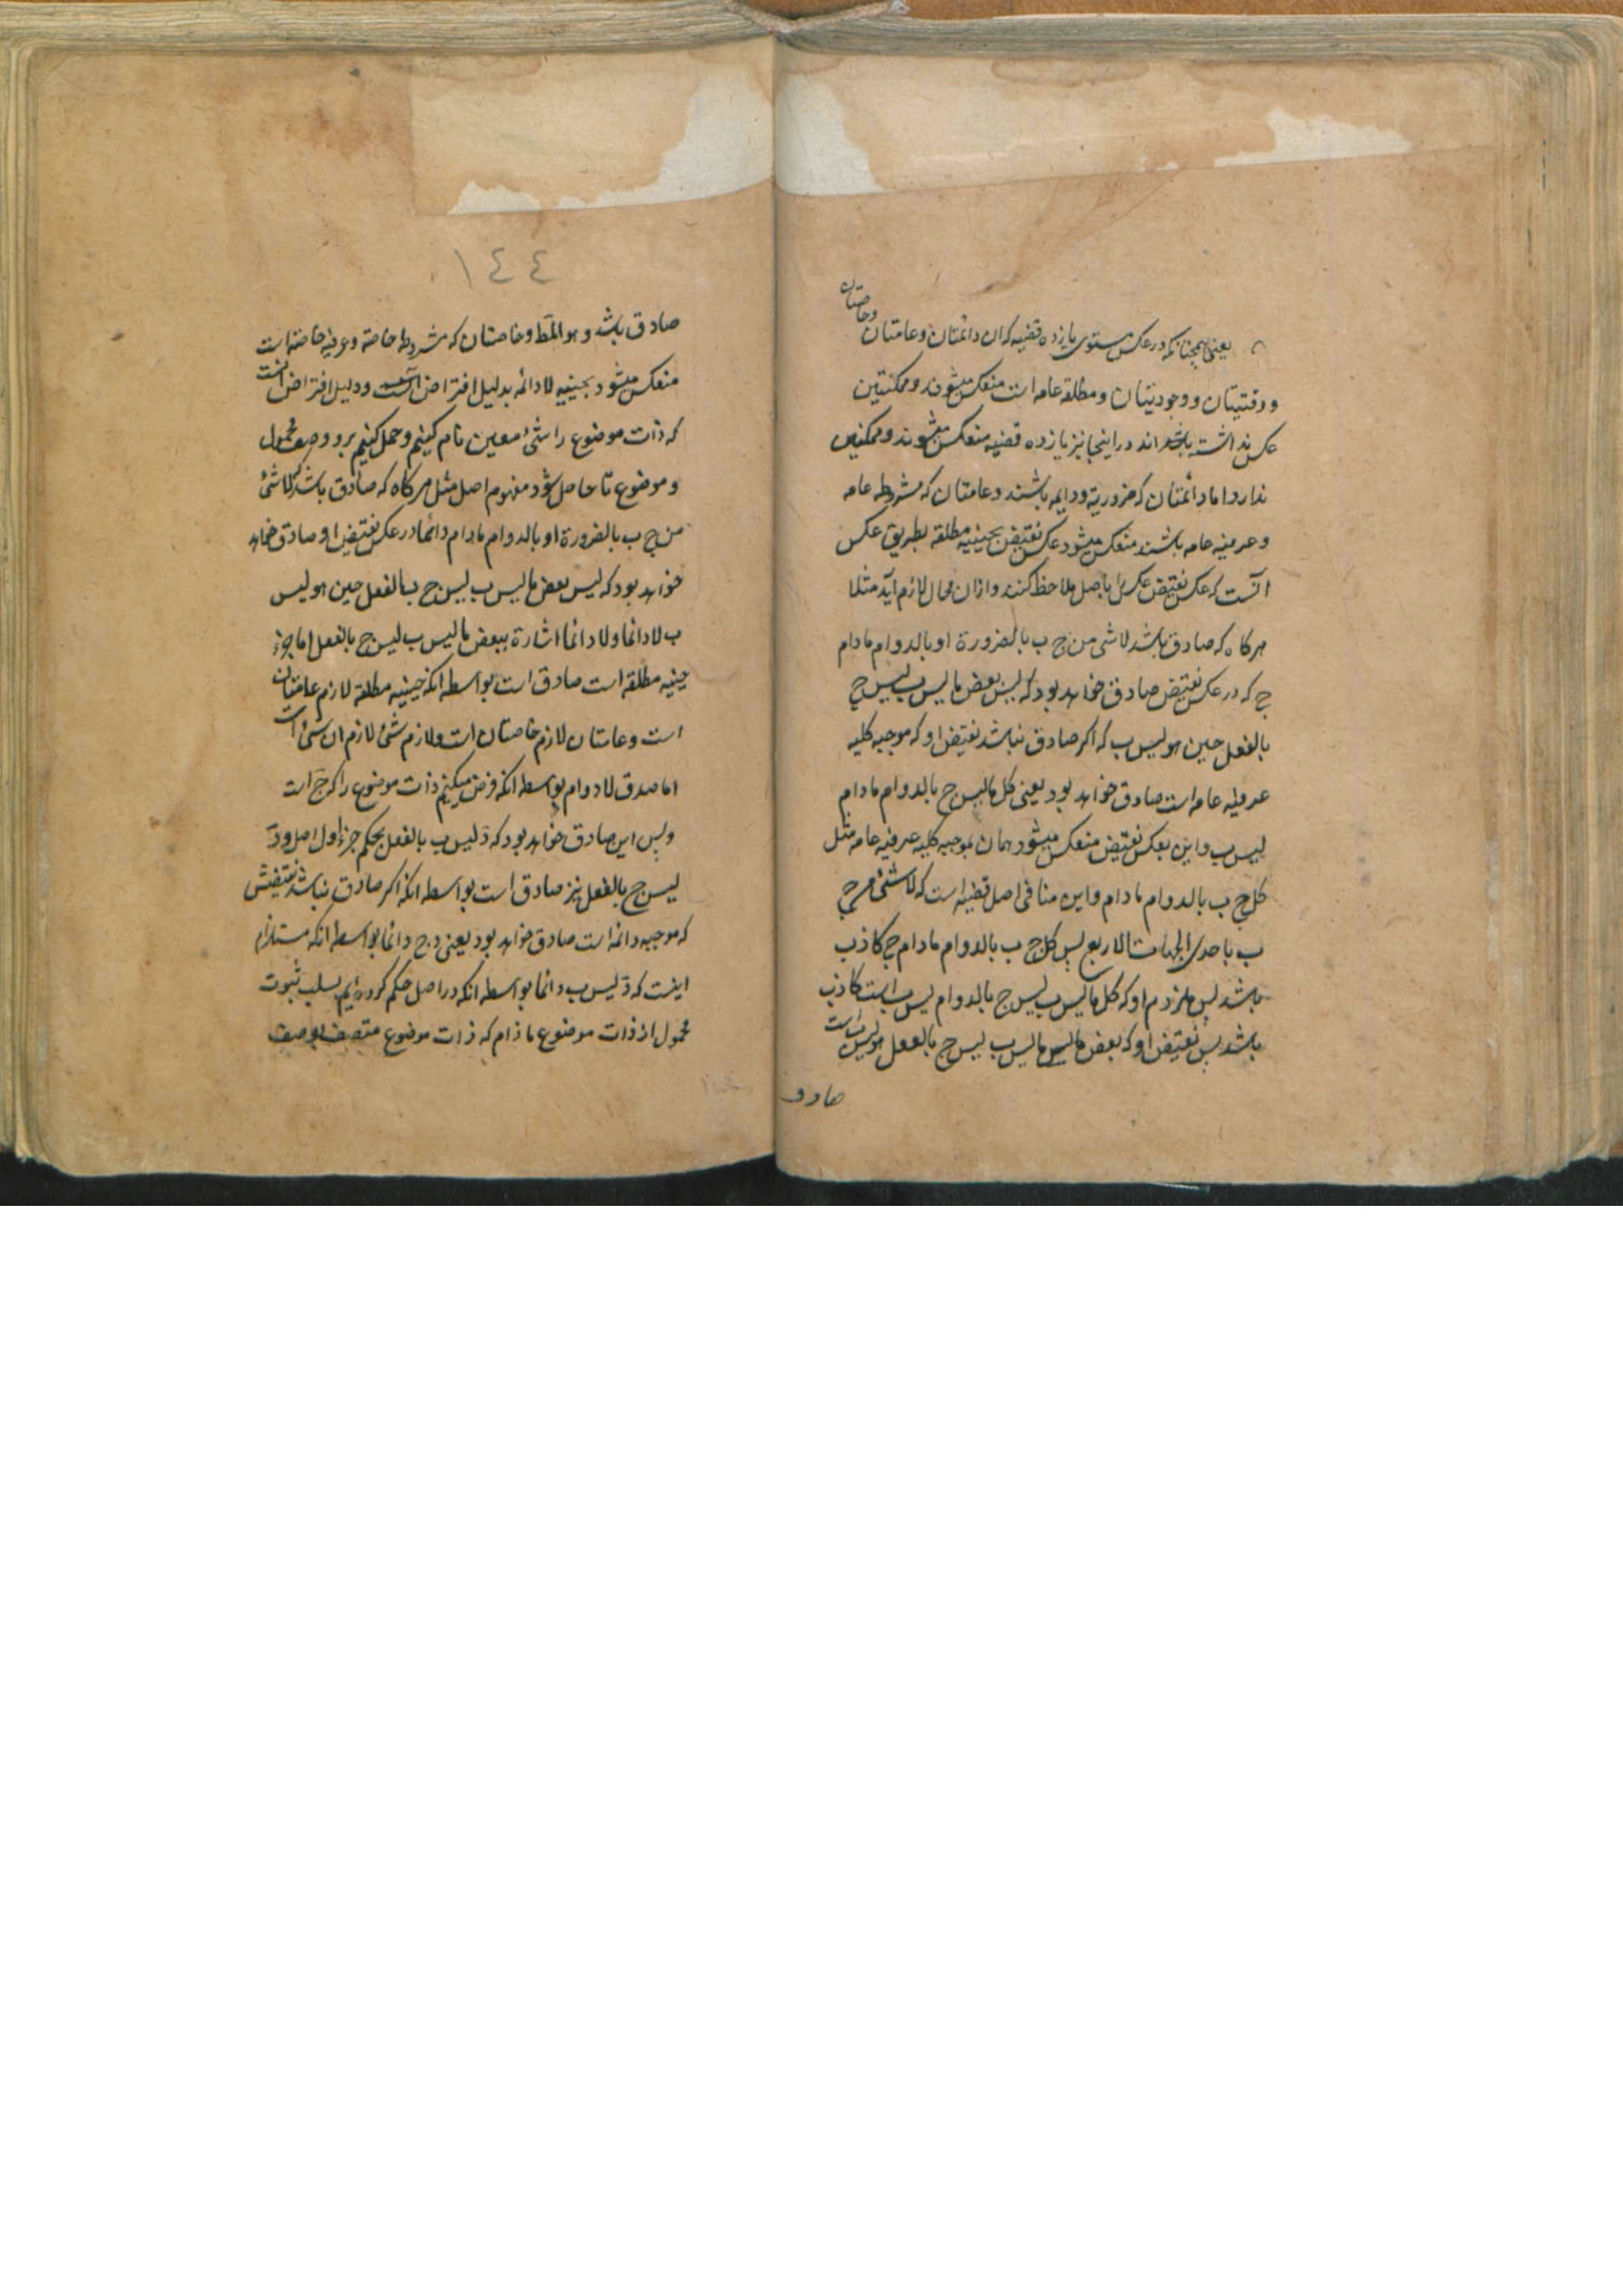 یعنی همچنانکه در عکس مستوی یازده قضیه که ان دائمتان و عامتان
وخاصتان
و وقتیتان و وجودیتان و مطلقه عامه است منعکس میشوند و ممکنتین
عکس نداشته باشد اند در اینجا نیز یازده قضیه منعکس میشوند و ممکنتین
ندارد اما دائمتان که ضروریه و دایمه باشند و عامتان که مشروطه عامه
و عرفیه عامه باشند منعکس میشود عکس نقیض بحینیه مطلقه بطریق عکس
انست که عکس نقیض عکس را باصل ملاحظه کنند و ازان محال لازم آید مثلا
هرکاه که صادق باشد لا شی من ج ب بالضرورة او بالدوام مادام
ج که در عکس نقیض صادق خواهد بود که لیس بعض ما لیس ب لیس ج
بالفعل حین هو لیس ب که اکر صادق نباشد نقیض او که موجبه کلیه
عرفیه عامه است صادق خواهد بود یعنی کل ما لیس ج بالدوام مادام
لیس ب و این بعکس نقیض منعکس میشود همان بموجبه کلیه عرفیه عامه مثل
کل ج ب بالدوام مادام و این منافی اصل قضیه است که لا شئ من ج
ب باحدی الجهات الاربع پس کل ج ب بالدوام مادام ج کاذب
باشد پس ملزوم او که کل ما لیس ب لیس ج بالدوام لیس ب است کاذب
باشد پس نقیض او که بعض ما لیس ما لیس ب لیس ج بالفعل هو لیس ب است
صادق
١٤٤
صادق باشد و هو المط و خاصتان که مشروطه خاصه و عرفیه خاصه است
منعکس میشود بحینیه لا دائمه بدلیل افتراض است و دلیل افتراض انست
که ذات موضوع را شئ معین نام کنیم و حمل کنیم برو وصف محمول
و موضوع تا حاصل شود مفهوم اصل مثل هرکاه که صادق باشد که لا شئ
من ج ب بالضرورة او بالدوام مادام دائما در عکس نقیض او صادق خواهد
خواهد بود که لیس بعض ما لیس ب لیس ج ب بالفعل حین هو لیس
ب لا دائما و لا دائما اشارة ببعض ما لیس ب لیس ج بالفعل اما جزء
حینیه مطلقه است صادق است بواسطه انکه حینیه مطلقه لازم عامتان
است و عامتان لازم خاصتان است و لازم شئ لازم ان شئ است
اما صدق لا دوام بواسطه انکه فرض میکنیم ذات موضوع را که ج است
د پس این صادق خواهد بود که د لیس ب بالفعل بحکم جزء اول اصل و د
لیس ج بالفعل نیز صادق است بواسطه انکه اکر صادق نباشد نقیضش
که موجبه دائمه است صادق خواهد بود یعنی د ج دائما بواسطه انکه مستلزم
اینست که د لیس ب دائما بواسطه انکه در اصل حکم کرده ایم بسلب ثبوت
محمول از ذات موضوع مادام که ذات موضوع متصف بوصف